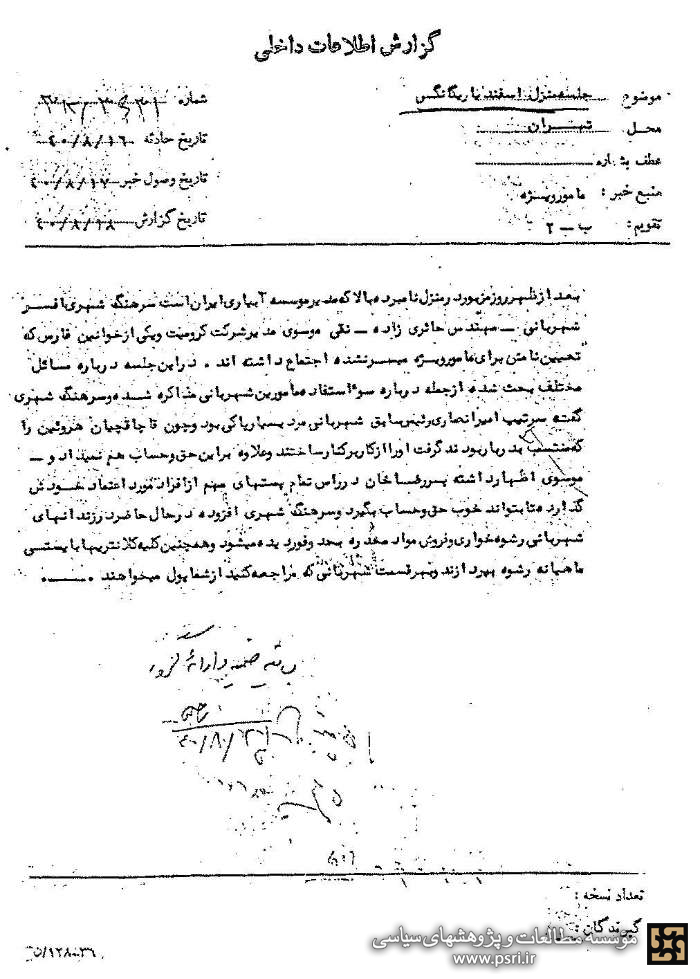 گزارش اطلاعات داخلی
موضوع جلسه منزل اسفندیار یگانگی
شماره
محل تهران
تاریخ حادثه ۴۰/۸/۱۶
عطف بشماره
تاریخ وصول خبر ۴۰/۸/۱۷
منبع خبر : مامور ویژه
تاریخ گزارش ۴۰/۸/۱۸
تقویم : ب - ۲
بعد از ظهر روز مزبور در منزل نامبرده بالا که مدیر موسسه آبیاری ایران است سرهنگ شهری افسر
شهربانی - مهندس حائری زاده - نقی موسوی مدیر شرکت کرومیت و یکی از خوانین فارس که
تعیین نامش برای مامور ویژه میسر نشده اجتماع داشته اند . در این جلسه درباره مسائل
مختلف بحث شده از جمله درباره سوء استفاده مامورین شهربانی مذاکره شده و سرهنگ شهری
گفته سرتیپ امیر انصاری رئیس سابق شهربانی مرد بسیار پاکی بود و چون قاچاقچیان هروئین را
که منتسب بدربار بودند گرفت او را از کار برکنار ساختند و علاوه بر این حق و حساب هم نمیداد و -
موسوی اظهار داشته پسر رضاخان در راس تمام پستهای مهم از افراد مورد اعتماد خودش
گذارده تا بتواند خوب حق و حساب بگیرد و سرهنگ شهری افزوده در حال حاضر در زندانهای
شهربانی رشوه خواری و فروش مواد مخدره بحد وفور دیده میشود و همچنین کلیه کلانتریها بایستی
ماهیانه رشوه بپردازند و بهر قسمت شهربانی که مراجعه کنید از شما پول میخواهند .
تعداد نسخه :
گیرندگان :
۵/۱۲۸-۳۶
موسسه مطالعات و پژوهشهای سیاسی
www.psri.ir